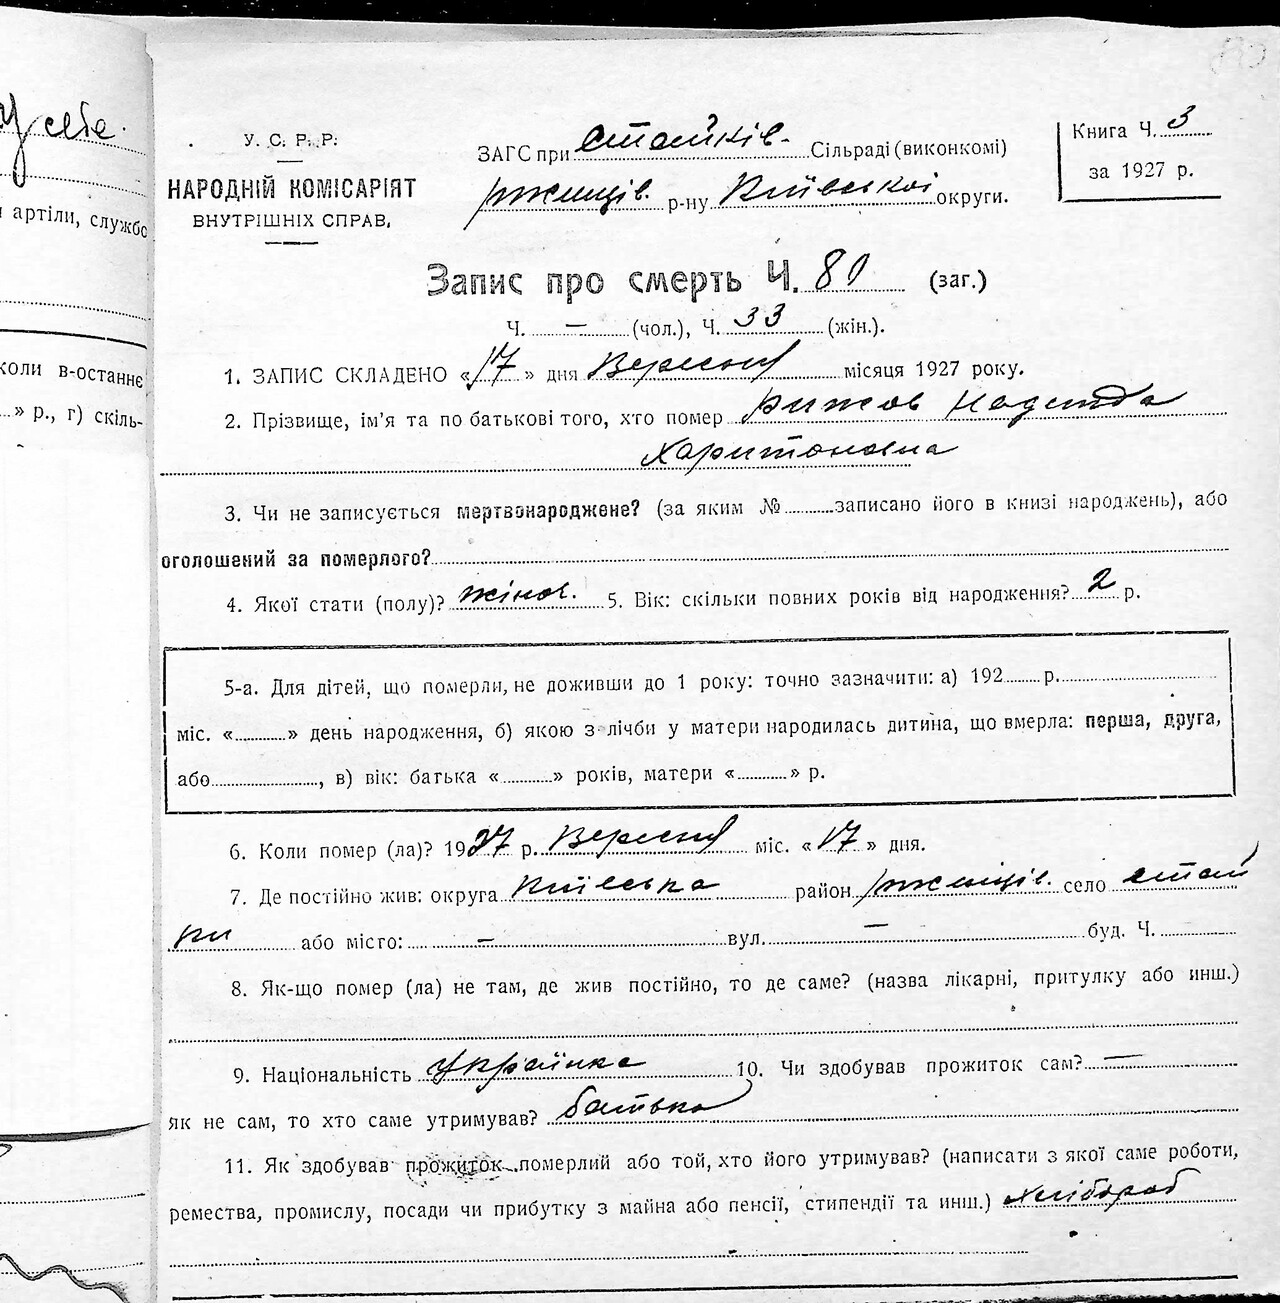 у себе.
артіли, службо
коли в-останнє
» р., г) скіль-
У. С. Р. Р.
НАРОДНІЙ КОМІСАРІЯТ
ВНУТРІШНІХ СПРАВ.
ЗАГС при Стайків. Сільраді (виконкомі)
Ржищів. р-ну Київської округи.
Книга Ч. 3
за 1927 р.
Запис про смерть Ч. 81 (заг.)
Ч. — (чол.), Ч. 33 (жін.).
1. ЗАПИС СКЛАДЕНО «17» дня Вересня місяця 1927 року.
2. Прізвище, ім'я та по батькові того, хто помер Рижов Надежда
Харитоновна
3. Чи не записується мертвонароджене? (за яким № ......записано його в книзі народжень), або
оголошений за померлого?
4. Якої стати (полу)? жіноч. 5. Вік: скільки повних років від народження? 2 р.
5-а. Для дітей, що померли, не доживши до 1 року: точно зазначити: а) 192......р.
міс. «......» день народження, б) якою з лічби у матери народилась дитина, що вмерла: перша, друга,
або......, в) вік: батька «......» років, матери «......» р.
6. Коли помер (ла)? 1927 р. Вересня міс. «17» дня.
7. Де постійно жив: округа Київська район Ржищів. село Стай
ки або місто: — вул. — буд. Ч.
8. Як-що помер (ла) не там, де жив постійно, то де саме? (назва лікарні, притулку або инш.)
9. Національність Українка 10. Чи здобував прожиток сам? —
як не сам, то хто саме утримував? батько
11. Як здобував прожиток померлий або той, хто його утримував? (написати з якої саме роботи,
ремества, промислу, посади чи прибутку з майна або пенсії, стипендії та инш.) хлібороб